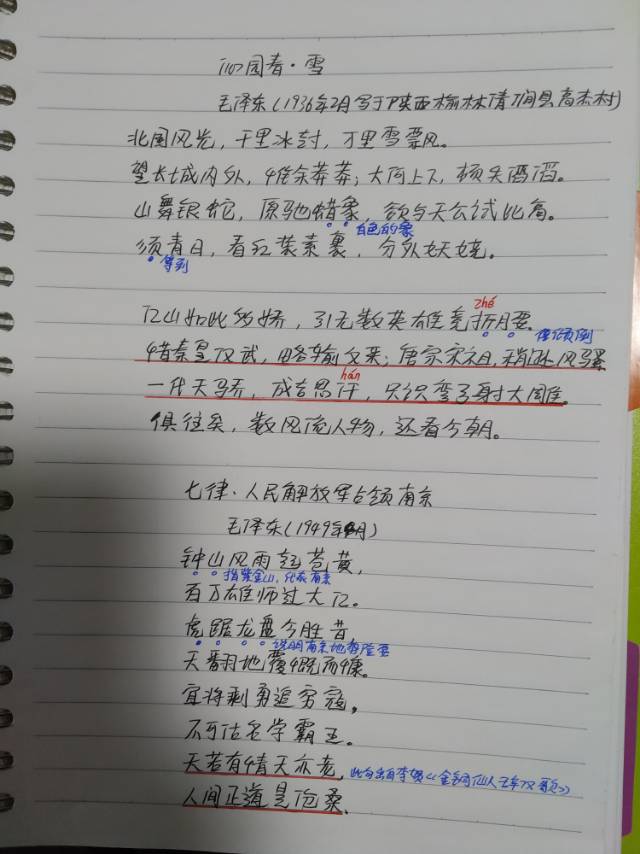 沁园春·雪
毛泽东(1936年2月写于陕西榆林清涧县高杰村)
北国风光，千里冰封，万里雪飘风。
望长城内外，惟余莽莽；大河上下，顿失滔滔。
山舞银蛇，原驰蜡象，欲与天公试比高。
白色的象
须晴日，看红装素裹，分外妖娆。
等到
zhé
江山如此多娇，引无数英雄竞折腰。
倾倒
惜秦皇汉武，略输文采；唐宗宋祖，稍逊风骚
hán
一代天骄，成吉思汗，只识弯弓射大雕。
俱往矣，数风流人物，还看今朝。
七律·人民解放军占领南京
毛泽东(1949年4月)
钟山风雨起苍黄，
指紫金山，代表南京
百万雄师过大江。
虎踞龙盘今胜昔
说明南京地势险要
天翻地覆慨而慷。
宜将剩勇追穷寇，
不可沽名学霸王。
天若有情天亦老，此句出自李贺《金铜仙人辞汉歌》
人间正道是沧桑。